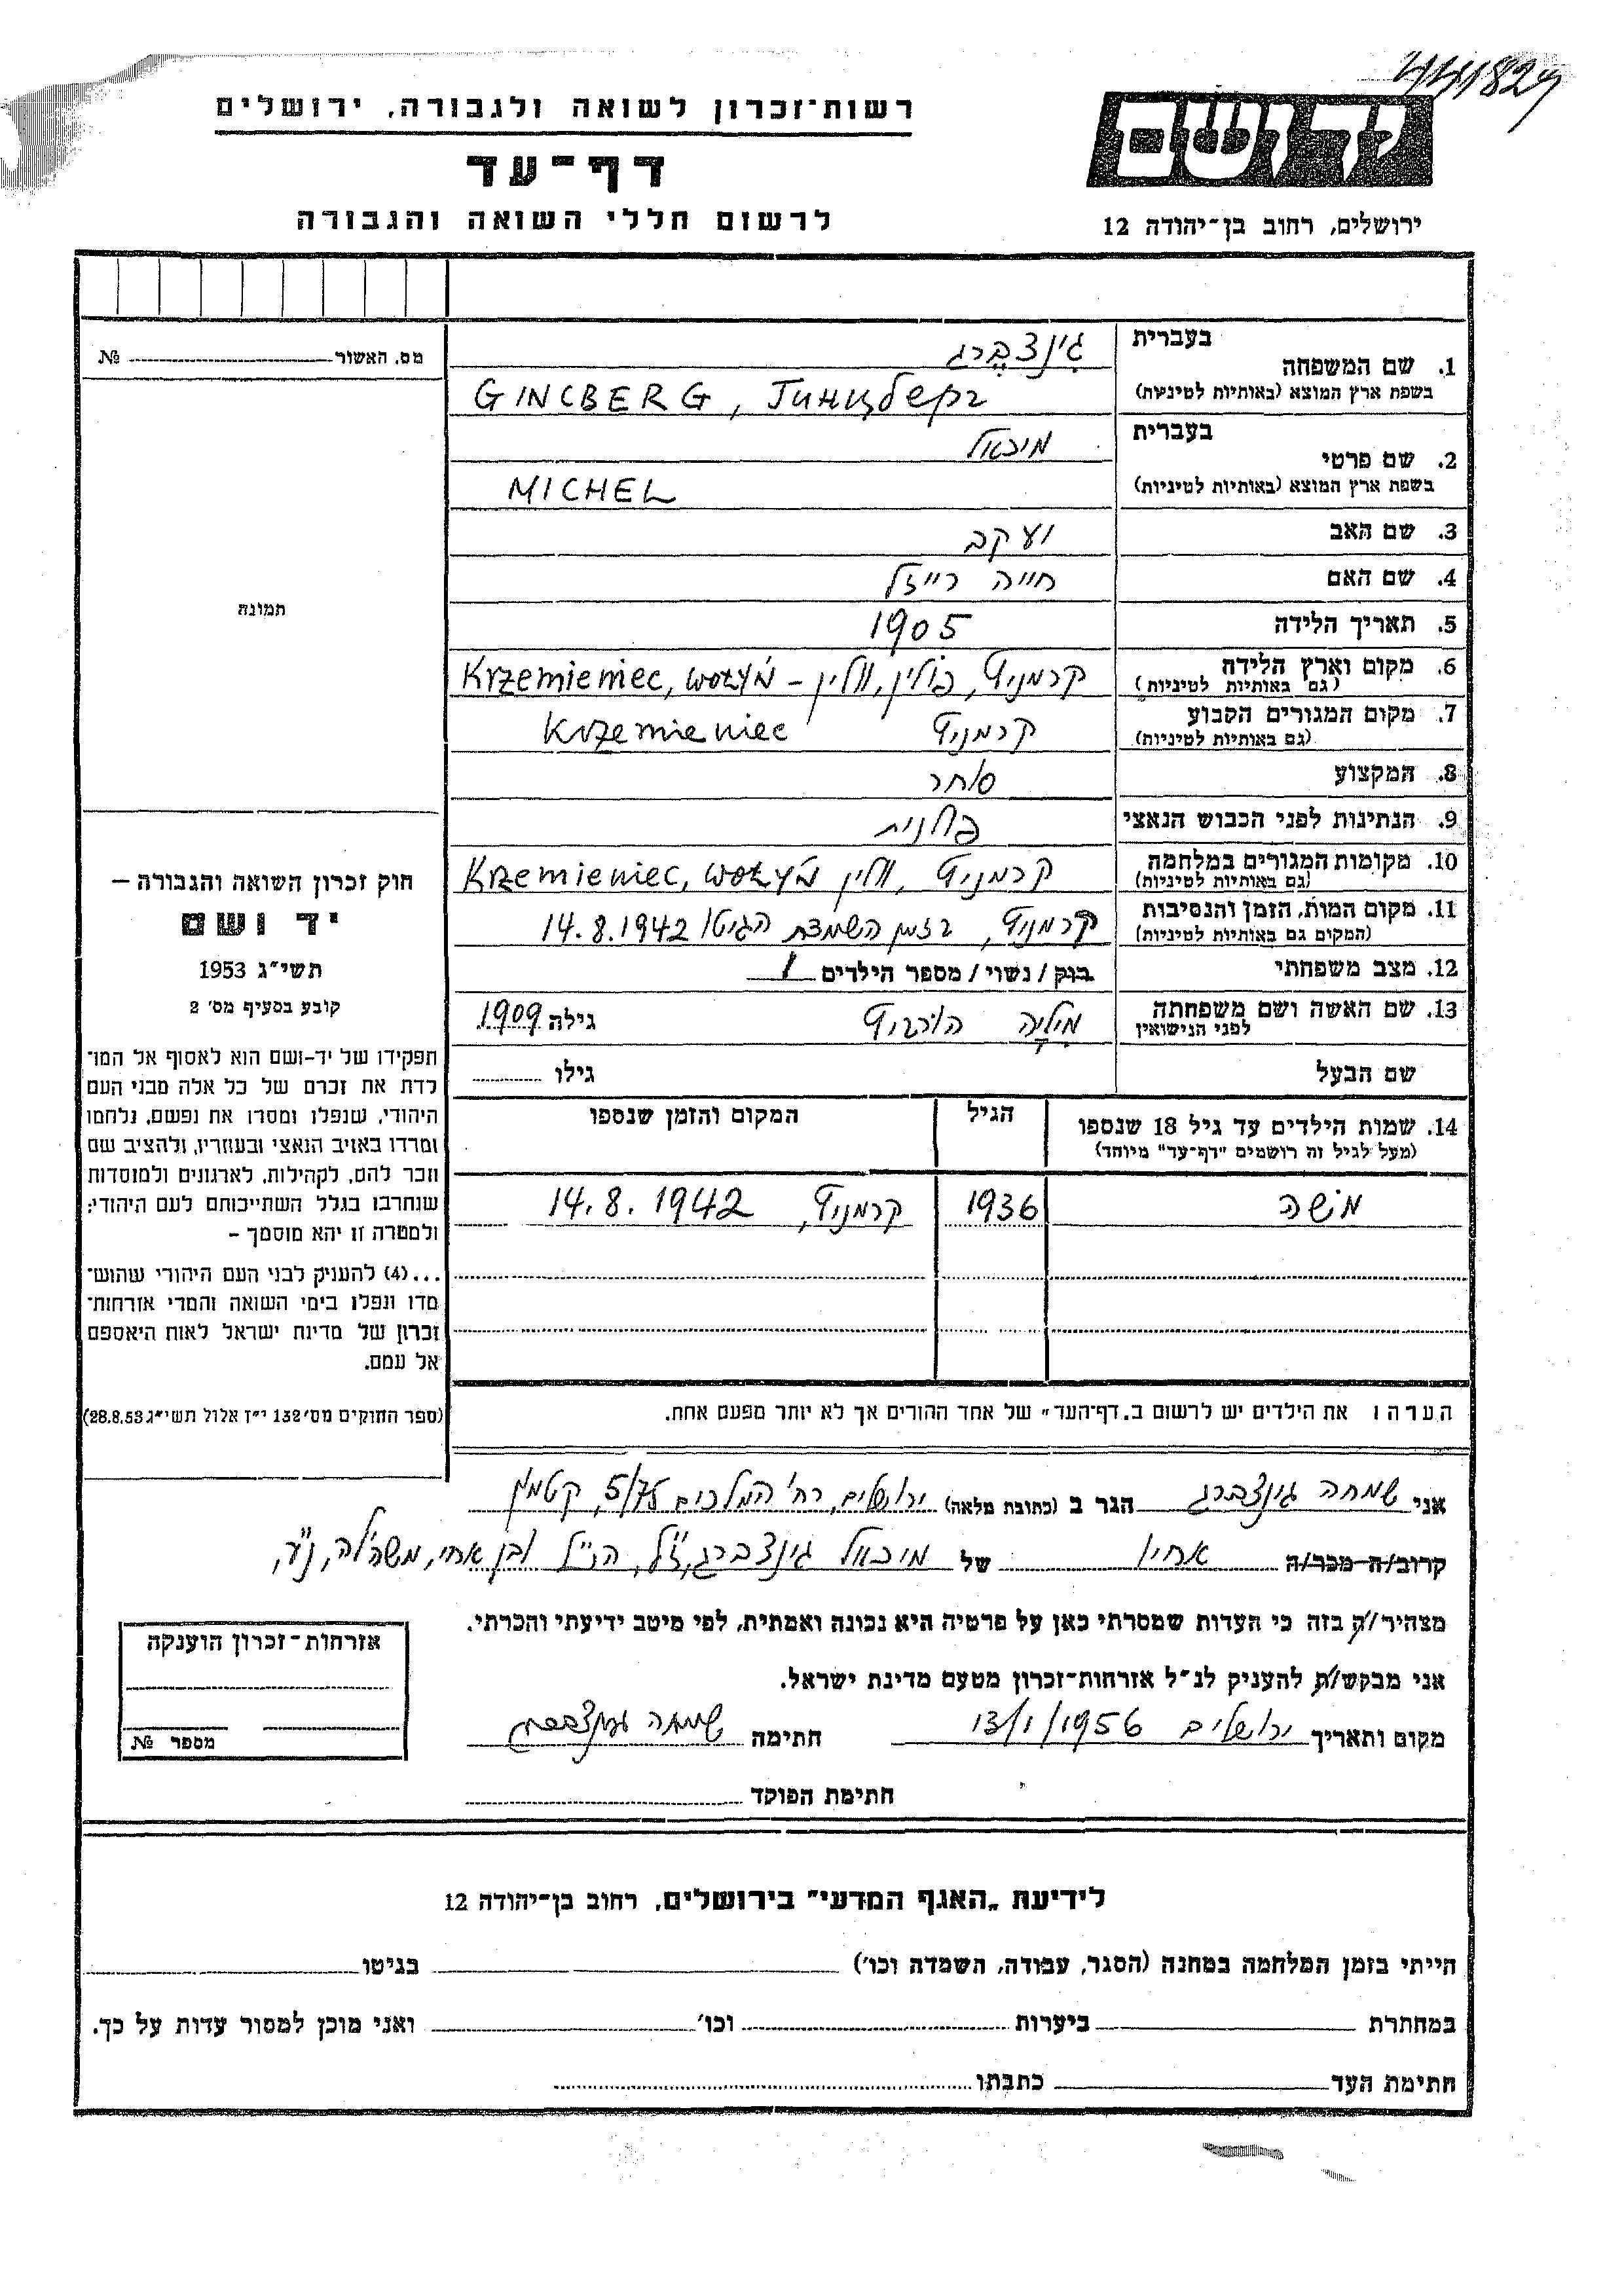 444829
רשות־זכרון לשואה ולגבורה, ירושלים
דף־עד
לרשום חללי השואה והגבורה
יד ושם
ירושלים, רחוב בן־יהודה 12
בעברית
1. שם המשפחה
גינצברג
בשפת ארץ המוצא (באותיות לטיניות)
GINCBERG,
בעברית
2. שם פרטי
מיכאל
בשפת ארץ המוצא (באותיות לטיניות)
MICHEL
3. שם האב יעקב
4. שם האם חייה רייזל
5. תאריך הלידה 1905
6. מקום וארץ הלידה קרמניץ, פולין, ווֹלין – Krzemieniec, Wołyń
(גם באותיות לטיניות)
7. מקום המגורים הקבוע קרמניץ Krzemieniec
(גם באותיות לטיניות)
8. המקצוע סוחר
9. הנתינות לפני הכבוש הנאצי פולנית
10. מקומות המגורים במלחמה קרמניץ, ווֹלין Krzemieniec, Wołyń
(גם באותיות לטיניות)
11. מקום המות, הזמן והנסיבות קרמניץ, בזמן השמדת הגיטו 14.8.1942
(המקום גם באותיות לטיניות)
12. מצב משפחתי רוק / נשוי / מספר הילדים 1
13. שם האשה ושם משפחתה הורביץ גילה 1909
לפני הנישואין
שם הבעל גילו
14. שמות הילדים עד גיל 18 שנספו הגיל המקום והזמן שנספו
(מעל לגיל זה רושמים "דף־עד" מיוחד)
משה 1936 קרמניץ, 14.8.1942
הערה: את הילדים יש לרשום ב„דף־העד" של אחד ההורים אך לא יותר מפעם אחת.
מס. האשור №
תמונה
חוק זכרון השואה והגבורה –
יד ושם
תשי״ג 1953
קובע בסעיף מס׳ 2
תפקידו של יד-ושם הוא לאסוף אל המו־
לדת את זכרם של כל אלה מבני העם
היהודי, שנפלו ומסרו את נפשם, נלחמו
ומרדו באויב הנאצי ובעוזריו, ולהציב שם
וזכר להם, לקהילות, לארגונים ולמוסדות
שנחרבו בגלל השתייכותם לעם היהודי;
ולמטרה זו יהא מוסמך –
...(4) להעניק לבני העם היהודי שהוש־
מדו ונפלו בימי השואה והמרי אזרחות־
זכרון של מדינת ישראל לאות היאספם
אל עמם.
(ספר החוקים מס׳ 132 י״ז אלול תשי״ג 28.8.53)
אני שמחה גינצברג הגר ב (כתובת מלאה) ירושלים, רח׳ המלכים 5/75, קטמון
קרוב/ה מכר/ה אחיו של מיכאל גינצברג, ז״ל, הנ״ל ובן אחי,
מצהיר/ה בזה כי העדות שמסרתי כאן על פרטיה היא נכונה ואמתית, לפי מיטב ידיעתי והכרתי.
אני מבקש/ת להעניק לנ״ל אזרחות־זכרון מטעם מדינת ישראל.
מקום ותאריך ירושלים 13/1/1956 חתימה שמחה גינצברג
חתימת הפוקד
אזרחות־זכרון הוענקה
מספר №
לידיעת „האגף המדעי" בירושלים, רחוב בן־יהודה 12
הייתי בזמן המלחמה במחנה (הסגר, עבודה, השמדה וכו׳) בגיטו
במחתרת ביערות וכו׳ ואני מוכן למסור עדות על כך.
חתימת העד כתבתו